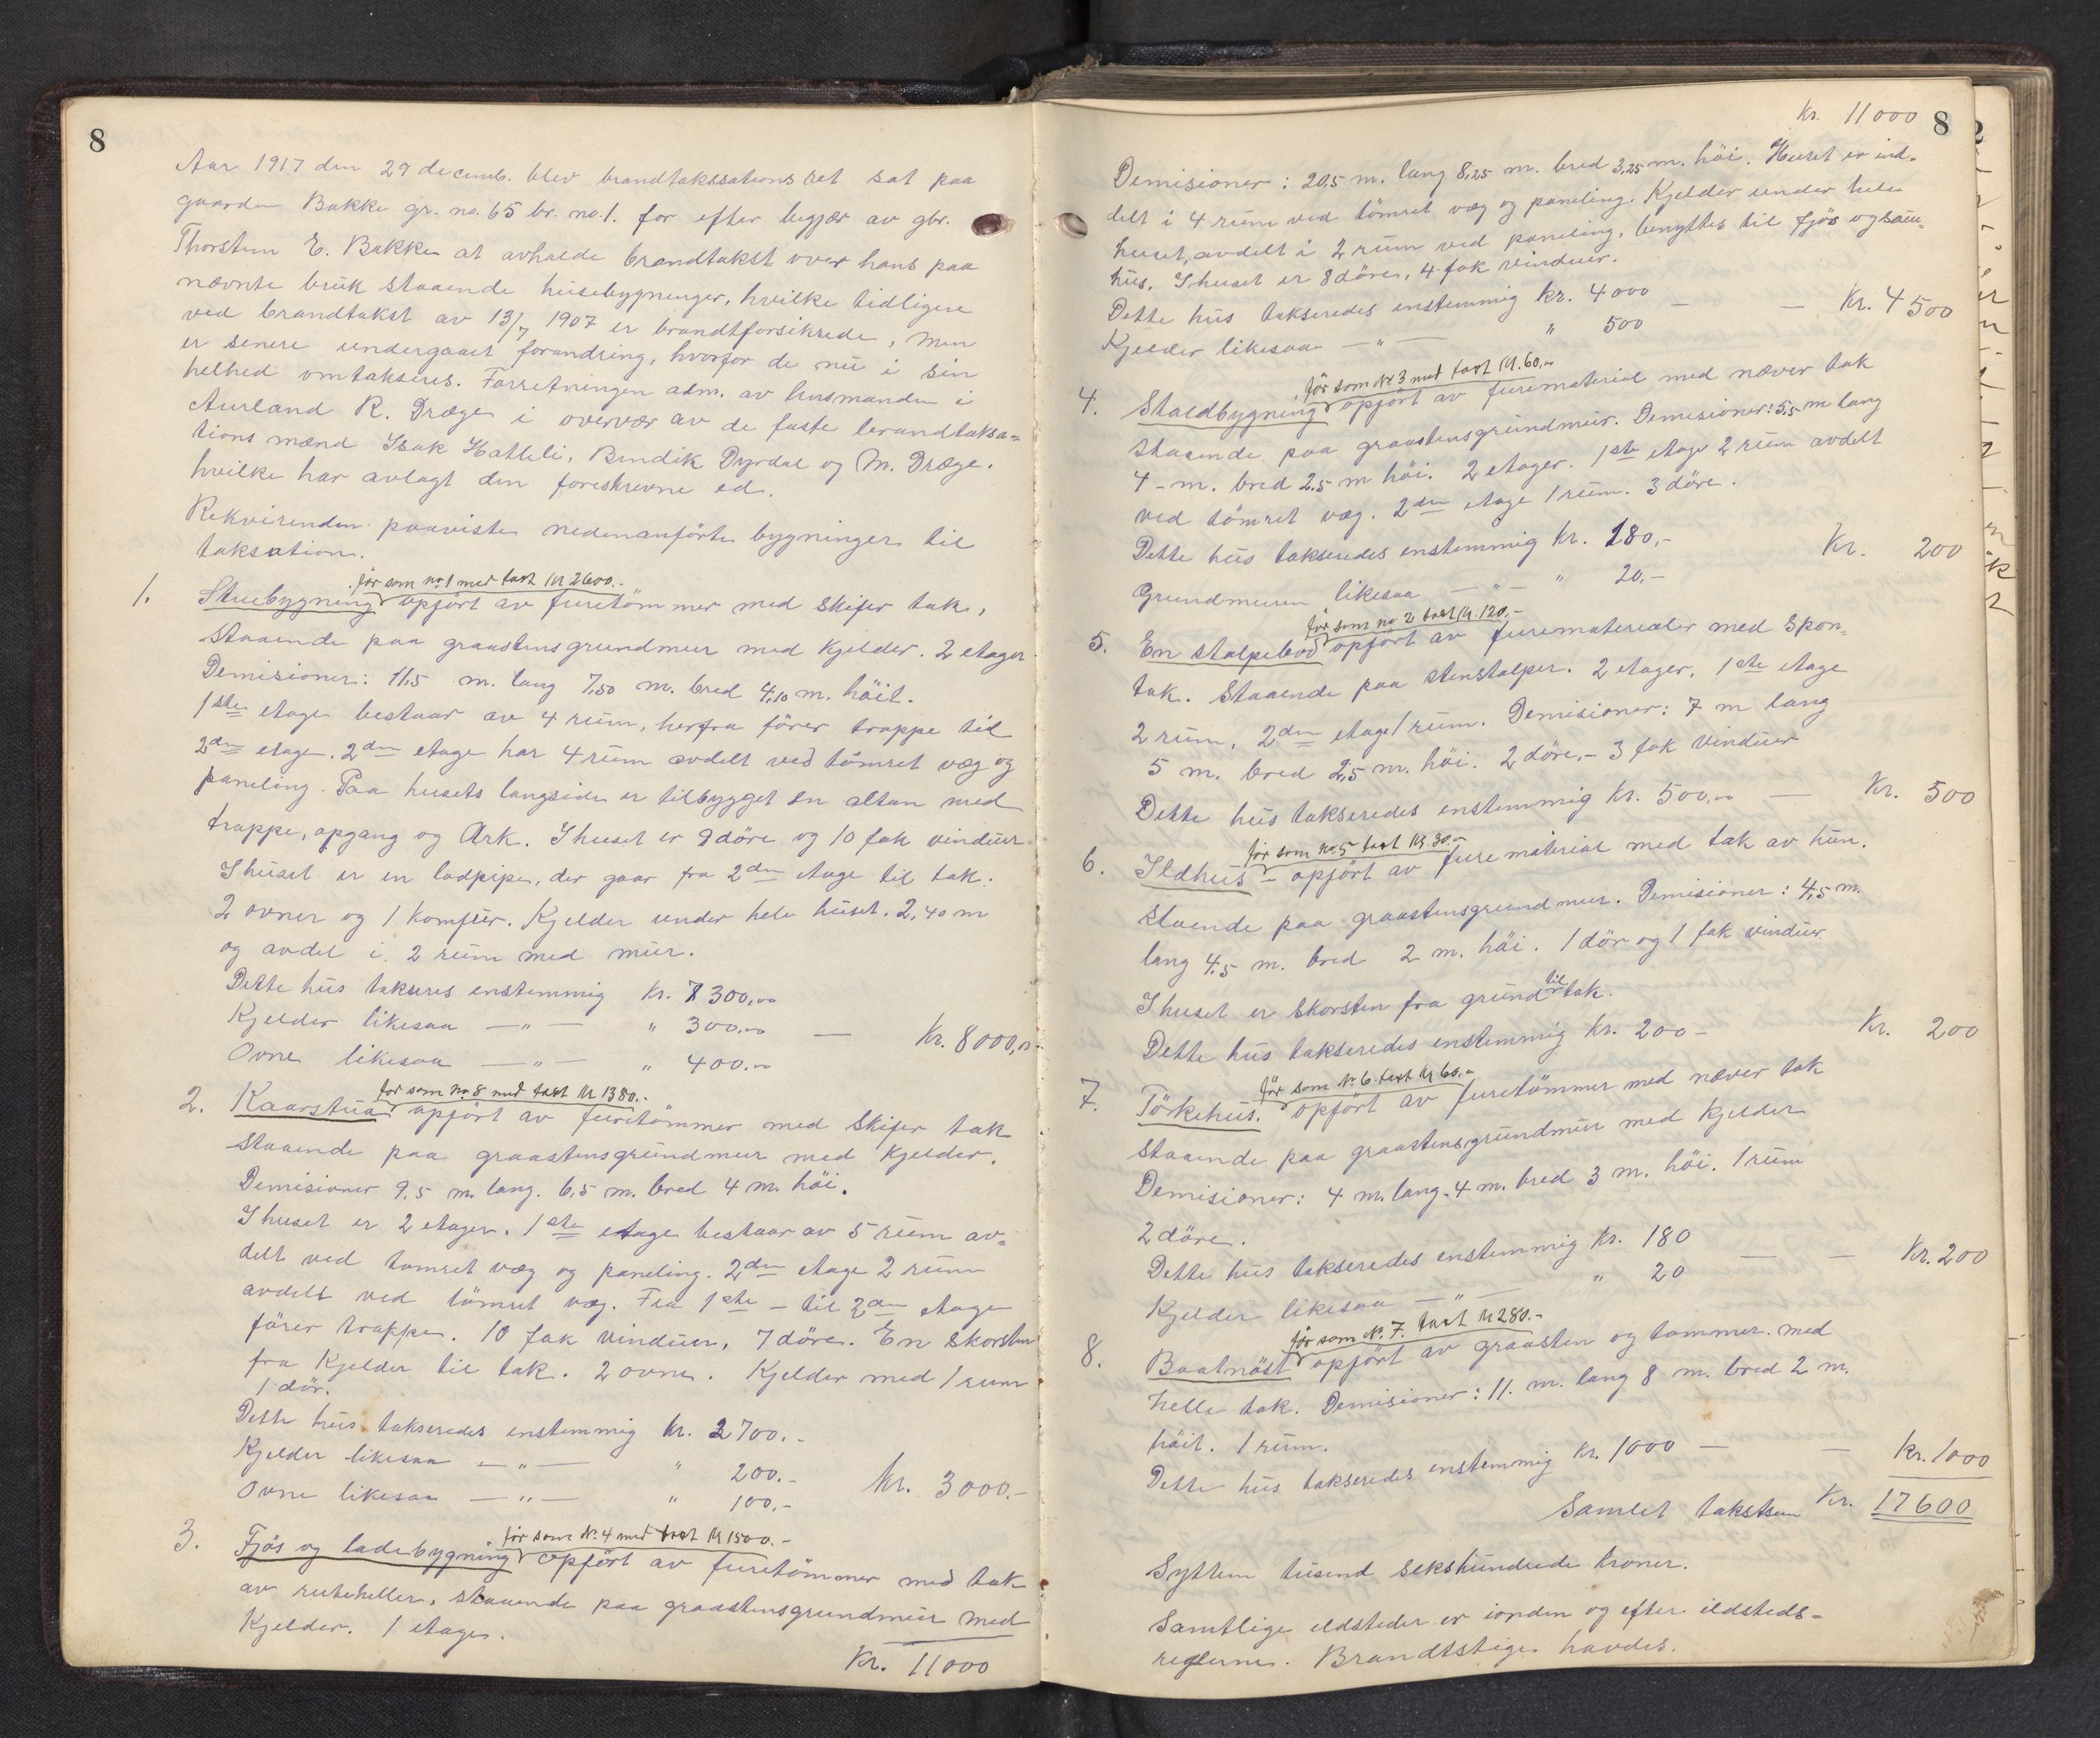 8
Aar 1917 den 27 decemb. blev brandtakssations ret sat paa
gaarden Bakke gr. no. 65 br. no. 1. for efter begjær av gbr.
Thorstein E. Bakke at avholde brandtakst over hans paa
nævnte bruk staaende husebygninger, hvilke tidligere
ved brandtakst av 13/7 1907 er brandtforsikrede, men
er senere undergaaet forandring, hvorfor de nu i sin
helhed omtakseres. Forretningen adm. av lensmanden i
Aurland R. Dræge i overvær av de faste brandtaksa=
tions mænd Isak Hatleli, Bendik Dyrdal og M. Dræge.
hvilke har avlagt den foreskrevne ed.
Rekvirenden paaviste nedenanförte bygninger til
taksation.
för som no 1 med taxt kr 2600.-
1. Stuebygning opfört av furetömmer med skifer tak,
staaende paa graastensgrundmur med kjelder. 2 etager.
Demisioner: 11,5 m. lang 7,50 m. bred 4,10 m. höit.
1ste etage bestaar av 4 rum, herfra förer trappe til
2den etage. 2den etage har 4 rum avdelt ved tömret væg og
paneling. Paa husets langside er tilbygget en altan med
trappe, opgang og Ark. I huset er 9 döre og 10 fak vinduer
I huset er en ladpipe, der gaar fra 2den etage til tak.
2 ovner og 1 komfur. Kjelder under hele huset. 2,40 m
og avdel i 2 rum med mur.
Dette hus takseres enstemmig kr. 7300,00
Kjelder likesaa — " — " 300.00 — Kr. 8000,00
Ovne likesaa — " — " 400.00
för som no 8 med taxt kr 1380.-
2. Kaarstua opfört av furetömmer med skifer tak
staaende paa graastensgrundmur med kjelder.
Demisioner 9,5 m. lang. 6,5 m. bred 4 m. höi.
I huset er 2 etager. 1ste etage bestaar av 5 rum av=
delt ved tomret væg og paneling. 2den etage 2 rum
avdelt ved tömret væg. Fra 1ste — til 2den etage
förer trappe. 10 fak vinduer, 7 döre. En skorsten
fra kjelder til tak. 2 ovne. Kjelder med 1 rum
1 dör.
Dette hus takseredes enstemmig kr. 2700.-
Kjelder likesaa — " — " 200.- kr. 3000.-
Ovne likesaa — " — " 100.-
för som No. 4 med taxt kr 1500.-
3. Fjös og ladebygning opfört av furetömmer med tak
av ruteheller, staaende paa graastensgrundmur med
kjelder. 1 etage.
Kr. 11000
Kr. 11000 8
Demisioner: 20,5 m. lang 8,25 m. bred 3,25 m. höi. Huset er ind=
delt i 4 rum ved tömret væg og paneling. Kjelder under hele
huset, avdelt i 2 rum ved paneling, benyttes til fjös og sau=
hus. I huset er 8 döre, 4 fak vinduer.
Dette hus takseredes enstemmig kr. 4000 — — Kr. 4500
Kjelder likesaa — " — " 500
för som No 3 med taxt kr. 60,00
4. Staldbygning opfört av furematerial med næver tak
staaende paa graastensgrundmur. Demisioner: 5,5 m lang
4 - m. bred 2.5 m höi. 2 etager. 1ste etage 2 rum avdelt
ved tömret væg. 2den etage 1 rum. 3 döre.
Dette hus takseredes enstemmig kr. 180,- Kr. 200
Grundmuren likesaa — " — " 20,-
för som no 2 taxt kr. 120.-
5. En stalpebod opfört av furematerialer med spon=
tak. Staaende paa stenstalper. 2 etager. 1ste etage
2 rum, 2den etage 1 rum. Demisioner: 7 m lang
5 m. bred 2,5 m. höi. 2 döre,- 3 fak vinduer
Dette hus takseredes enstemmig kr. 500,00 — Kr. 500
för som no. 5 taxt kr. 30.-
6. Ildhus - opfört av furematerial med tak av hun.
staende paa graastensgrundmur. Demisioner: 4,5 m.
lang 4,5 m. bred 2 m. höi. 1 dör og 1 fak vinduer
I huset er skorsten fra grund til tak.
Dette hus takseredes enstemmig kr. 200 - Kr. 200
för som No. 6. taxt kr 60.-
7. Törkehus. opfört av furetömmer med næver tak
staaende paa graastensgrundmur med kjelder
Demisioner: 4 m. lang. 4 m. bred 3 m. höi. 1 rum
2 döre.
Dette hus takseredes enstemmig kr. 180 — — Kr. 200
Kjelder likesaa — " — " 20
för som No. 7. taxt kr 280.-
8. Baatnöst opfört av graasten og tommer. med
helle tak. Demisioner: 11. m. lang 8 m. bred 2 m.
höit. 1 rum.
Dette hus takseredes enstemmig kr. 1000 — — Kr. 1000
Samlet takstsum Kr. 17600
Sytten tusend sekshundrede kroner.
Samtlige ildsteder er iorden og efter ildsteds=
reglerne. Brandstige havdes.